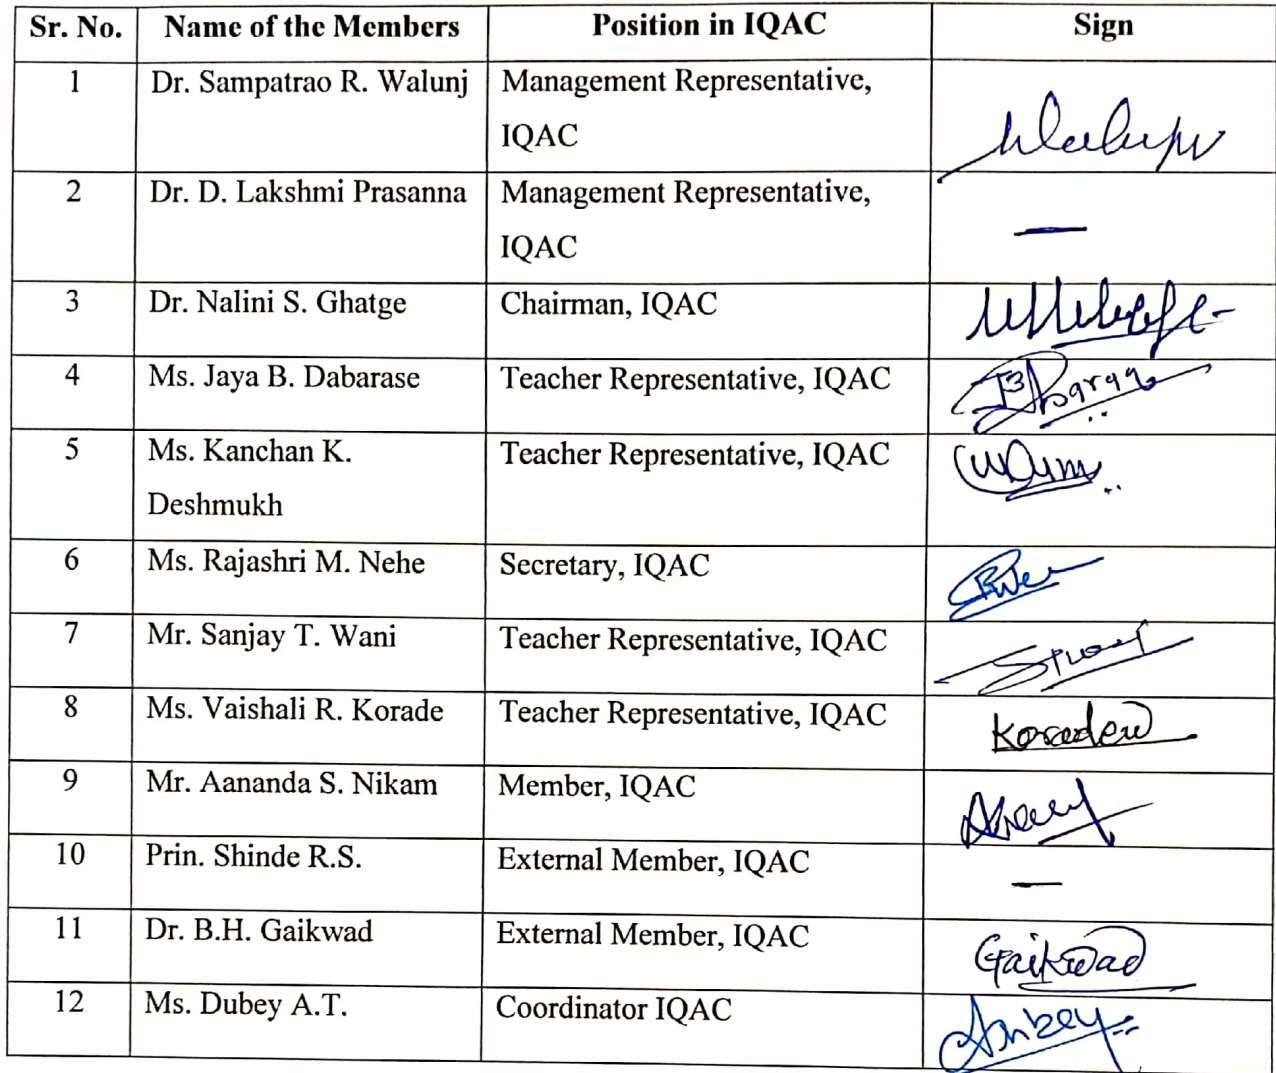 Sr. No. Name of the Members Position in IQAC Sign
1 Dr. Sampatrao R. Walunj Management Representative,
IQAC
2 Dr. D. Lakshmi Prasanna Management Representative,
IQAC —
3 Dr. Nalini S. Ghatge Chairman, IQAC
4 Ms. Jaya B. Dabarase Teacher Representative, IQAC
5 Ms. Kanchan K. Teacher Representative, IQAC
Deshmukh
6 Ms. Rajashri M. Nehe Secretary, IQAC
7 Mr. Sanjay T. Wani Teacher Representative, IQAC
8 Ms. Vaishali R. Korade Teacher Representative, IQAC
9 Mr. Aananda S. Nikam Member, IQAC
10 Prin. Shinde R.S. External Member, IQAC —
11 Dr. B.H. Gaikwad External Member, IQAC Gaikwad
12 Ms. Dubey A.T. Coordinator IQAC